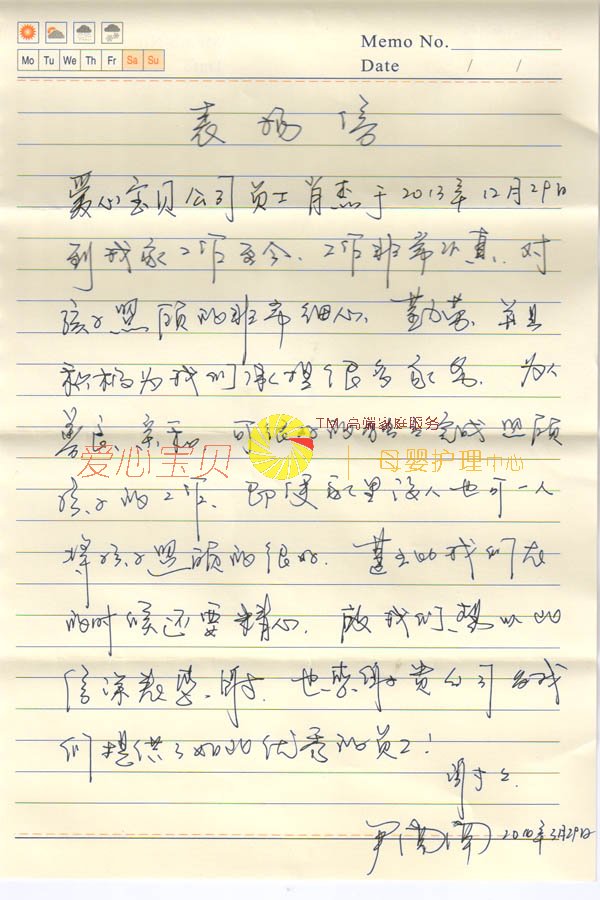 Memo No.
Mo Tu We Th Fr Sa Su
Date / /
表扬信
爱心宝贝公司员工肖杰于2013年12月29日
到我家工作至今、工作非常认真、对
孩子照顾的非常细心、勤劳、并且
积极为我们承担很多家务、为人
善良、亲和、可很好的 完成照顾
TM 高端家庭服务
爱心宝贝
母婴护理中心
孩子的工作、即使家里没人也可一人
将孩子照顾的很好、 的我们在
的时候还要精心、故我们想以此
信深表感谢、也感谢贵公司为我
们提供了如此优秀的员工!
谢谢
3月29日